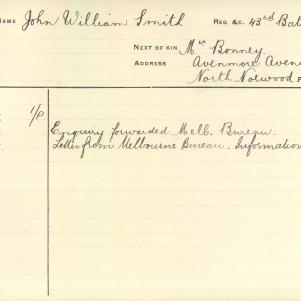 NAME John William Smith REG. &C. 43rd Bat
NEXT OF KIN Mrs Bonney
ADDRESS Avenmore Aven
North Norwood
1/P
Enquiry forwarded Melb. Bureau.
Letter from Melbourne Bureau. Information